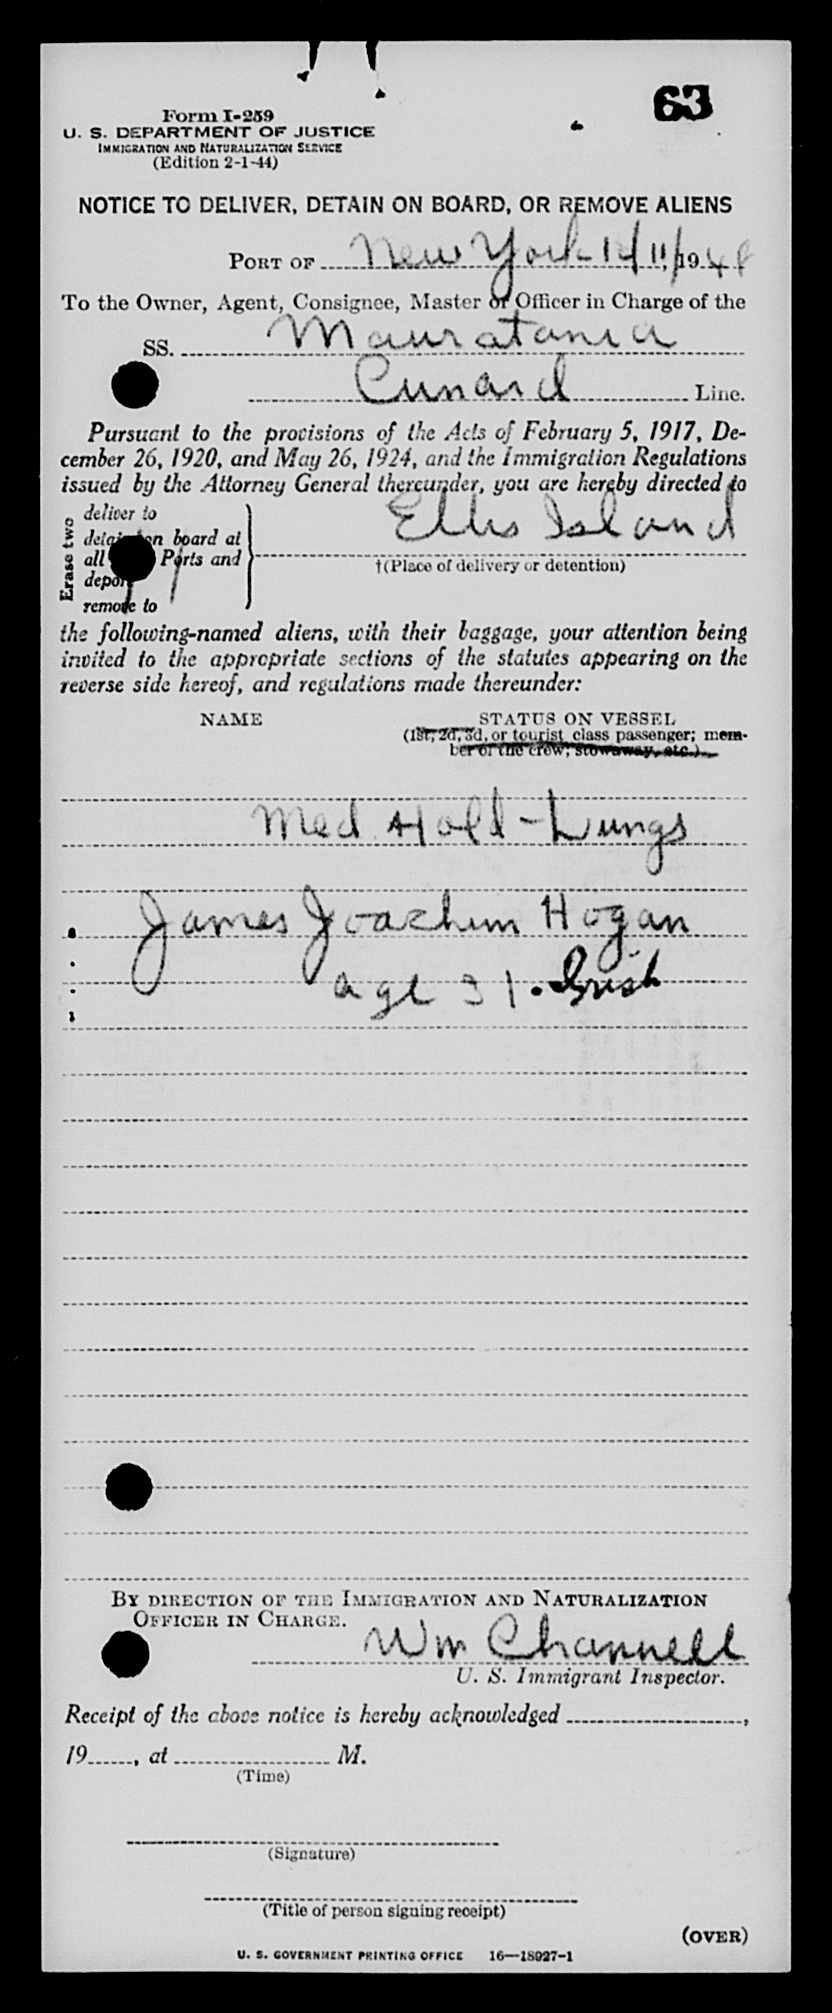 63
Form I-259
U. S. DEPARTMENT OF JUSTICE
IMMIGRATION AND NATURALIZATION SERVICE
(Edition 2-1-44)
NOTICE TO DELIVER, DETAIN ON BOARD, OR REMOVE ALIENS
PORT OF New York 11/, 194
To the Owner, Agent, Consignee, Master or Officer in Charge of the
SS. Mauratania
Cunard Line.
Pursuant to the provisions of the Acts of February 5, 1917, De-
cember 26, 1920, and May 26, 1924, and the Immigration Regulations
issued by the Attorney General thereunder, you are hereby directed to
Erase two
deliver to
detain on board at
all Ports and
deport
remove to
Ellis Island
†(Place of delivery or detention)
the following-named aliens, with their baggage, your attention being
invited to the appropriate sections of the statutes appearing on the
reverse side hereof, and regulations made thereunder:
NAME STATUS ON VESSEL
(1st, 2d, 3d, or tourist class passenger; mem-
ber of the crew; stowaway, etc.)
Med Hold - Lungs
James Joachim Hogan
age 31. Irish
BY DIRECTION OF THE IMMIGRATION AND NATURALIZATION
OFFICER IN CHARGE.
Wm Channell
U. S. Immigrant Inspector.
Receipt of the above notice is hereby acknowledged ,
19 , at M.
(Time)
(Signature)
(Title of person signing receipt)
(OVER)
U. S. GOVERNMENT PRINTING OFFICE 16—18927-1